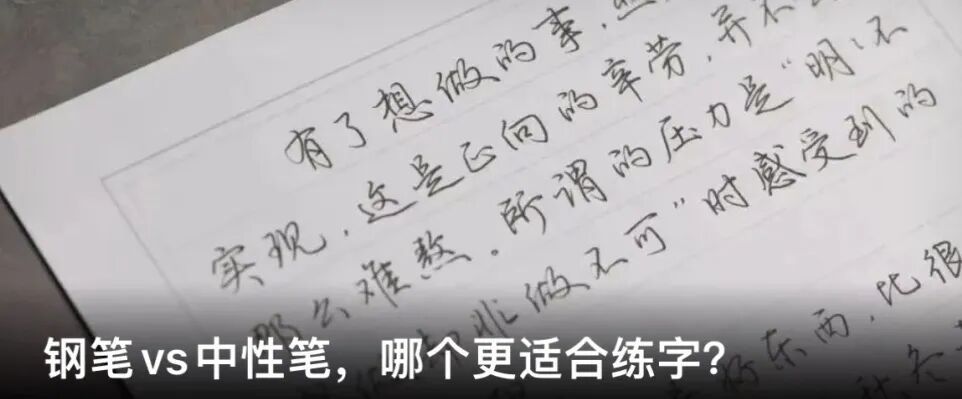 有了想做的事，
实现，这是正向的辛劳，并不
那么难熬，所谓的压力是“明明不
做不可”时感受到的
东西，比很
钢笔vs中性笔，哪个更适合练字？